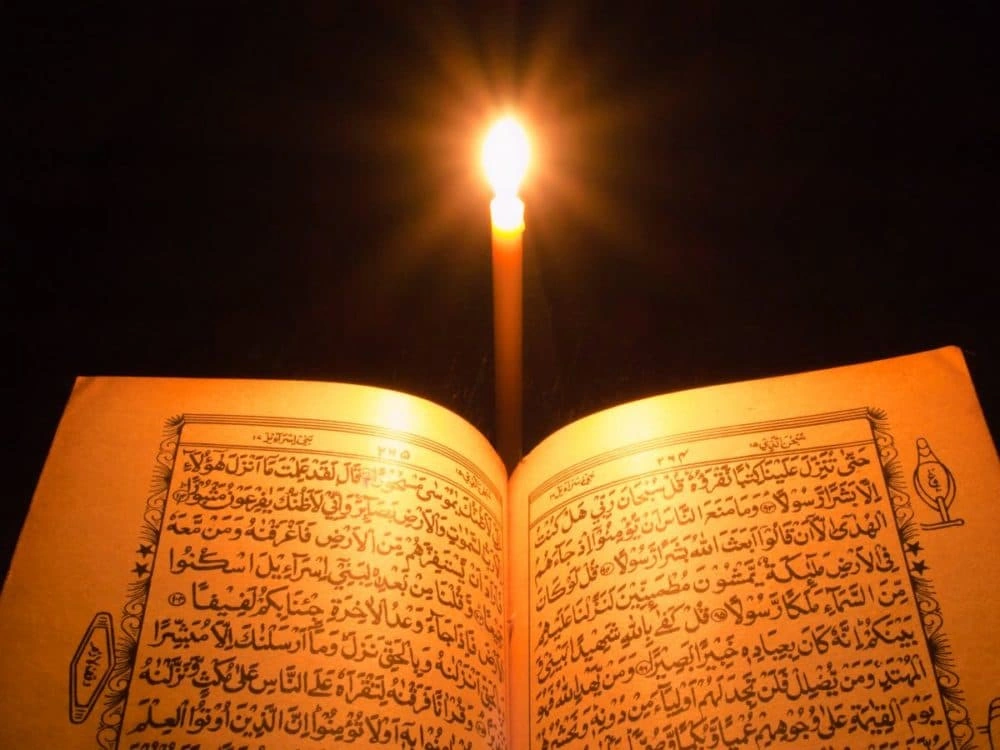 سُبْحٰنَ الَّذِيْ ۱۵
۲۶۴
حَتّٰى تُنَزِّلَ عَلَيْنَا كِتٰبًا نَّقْرَؤُهٗ قُلْ سُبْحَانَ رَبِّيْ هَلْ كُنْتُ
اِلَّا بَشَرًا رَّسُوْلًا ۹۳ وَمَا مَنَعَ النَّاسَ اَنْ يُّؤْمِنُوْٓا اِذْ جَآءَهُمُ
الْهُدٰٓى اِلَّآ اَنْ قَالُوْٓا اَبَعَثَ اللّٰهُ بَشَرًا رَّسُوْلًا ۹۴ قُلْ لَّوْ كَانَ
فِي الْاَرْضِ مَلٰٓئِكَةٌ يَّمْشُوْنَ مُطْمَئِنِّيْنَ لَنَزَّلْنَا عَلَيْهِمْ
مِّنَ السَّمَآءِ مَلَكًا رَّسُوْلًا ۹۵ قُلْ كَفٰى بِاللّٰهِ شَهِيْدًا بَيْنِيْ وَ
بَيْنَكُمْ اِنَّهٗ كَانَ بِعِبَادِهٖ خَبِيْرًا بَصِيْرًا ۹۶ وَمَنْ يَّهْدِ اللّٰهُ فَهُوَ
الْمُهْتَدِ وَمَنْ يُّضْلِلْ فَلَنْ تَجِدَ لَهُمْ اَوْلِيَآءَ مِنْ دُوْنِهٖ وَنَحْشُرُهُمْ
يَوْمَ الْقِيٰمَةِ عَلٰى وُجُوْهِهِمْ عُمْيًا وَّبُكْمًا
۲۶۵
بَنِيْٓ اِسْرَآءِيْل ۱۷
لَاَظُنُّكَ يٰمُوْسٰى مَسْحُوْرًا ۱۰۱ قَالَ لَقَدْ عَلِمْتَ مَآ اَنْزَلَ هٰٓؤُلَآءِ
السَّمٰوٰتِ وَالْاَرْضِ بَصَآئِرَ وَاِنِّيْ لَاَظُنُّكَ يٰفِرْعَوْنُ مَثْبُوْرًا ۱۰۲
اَنْ يَّسْتَفِزَّهُمْ مِّنَ الْاَرْضِ فَاَغْرَقْنٰهُ وَمَنْ مَّعَهٗ
وَّقُلْنَا مِنْۢ بَعْدِهٖ لِبَنِيْٓ اِسْرَآءِيْلَ اسْكُنُوا
فَاِذَا جَآءَ وَعْدُ الْاٰخِرَةِ جِئْنَا بِكُمْ لَفِيْفًا ۱۰۴
اَنْزَلْنٰهُ وَبِالْحَقِّ نَزَلَ وَمَآ اَرْسَلْنٰكَ اِلَّا مُبَشِّرًا
وَقُرْاٰنًا فَرَقْنٰهُ لِتَقْرَاَهٗ عَلَى النَّاسِ عَلٰى مُكْثٍ وَّنَزَّلْنٰهُ
اٰمِنُوْا بِهٖٓ اَوْ لَا تُؤْمِنُوْا اِنَّ الَّذِيْنَ اُوْتُوا الْعِلْمَ